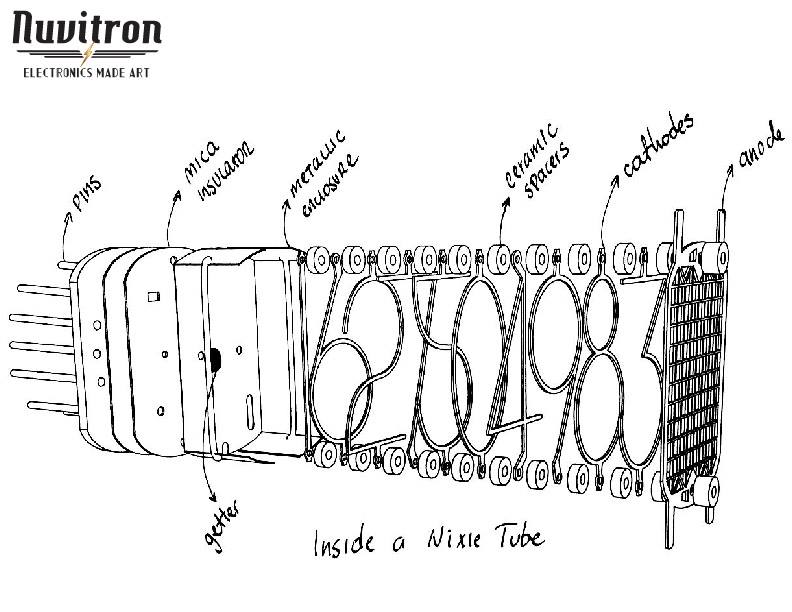 Nuvitron
ELECTRONICS MADE ART
PINS
MICA
INSULATOR
METALLIC
ENCLOSURE
CERAMIC
SPACERS
CATHODES
ANODE
getter
Inside a Nixie Tube